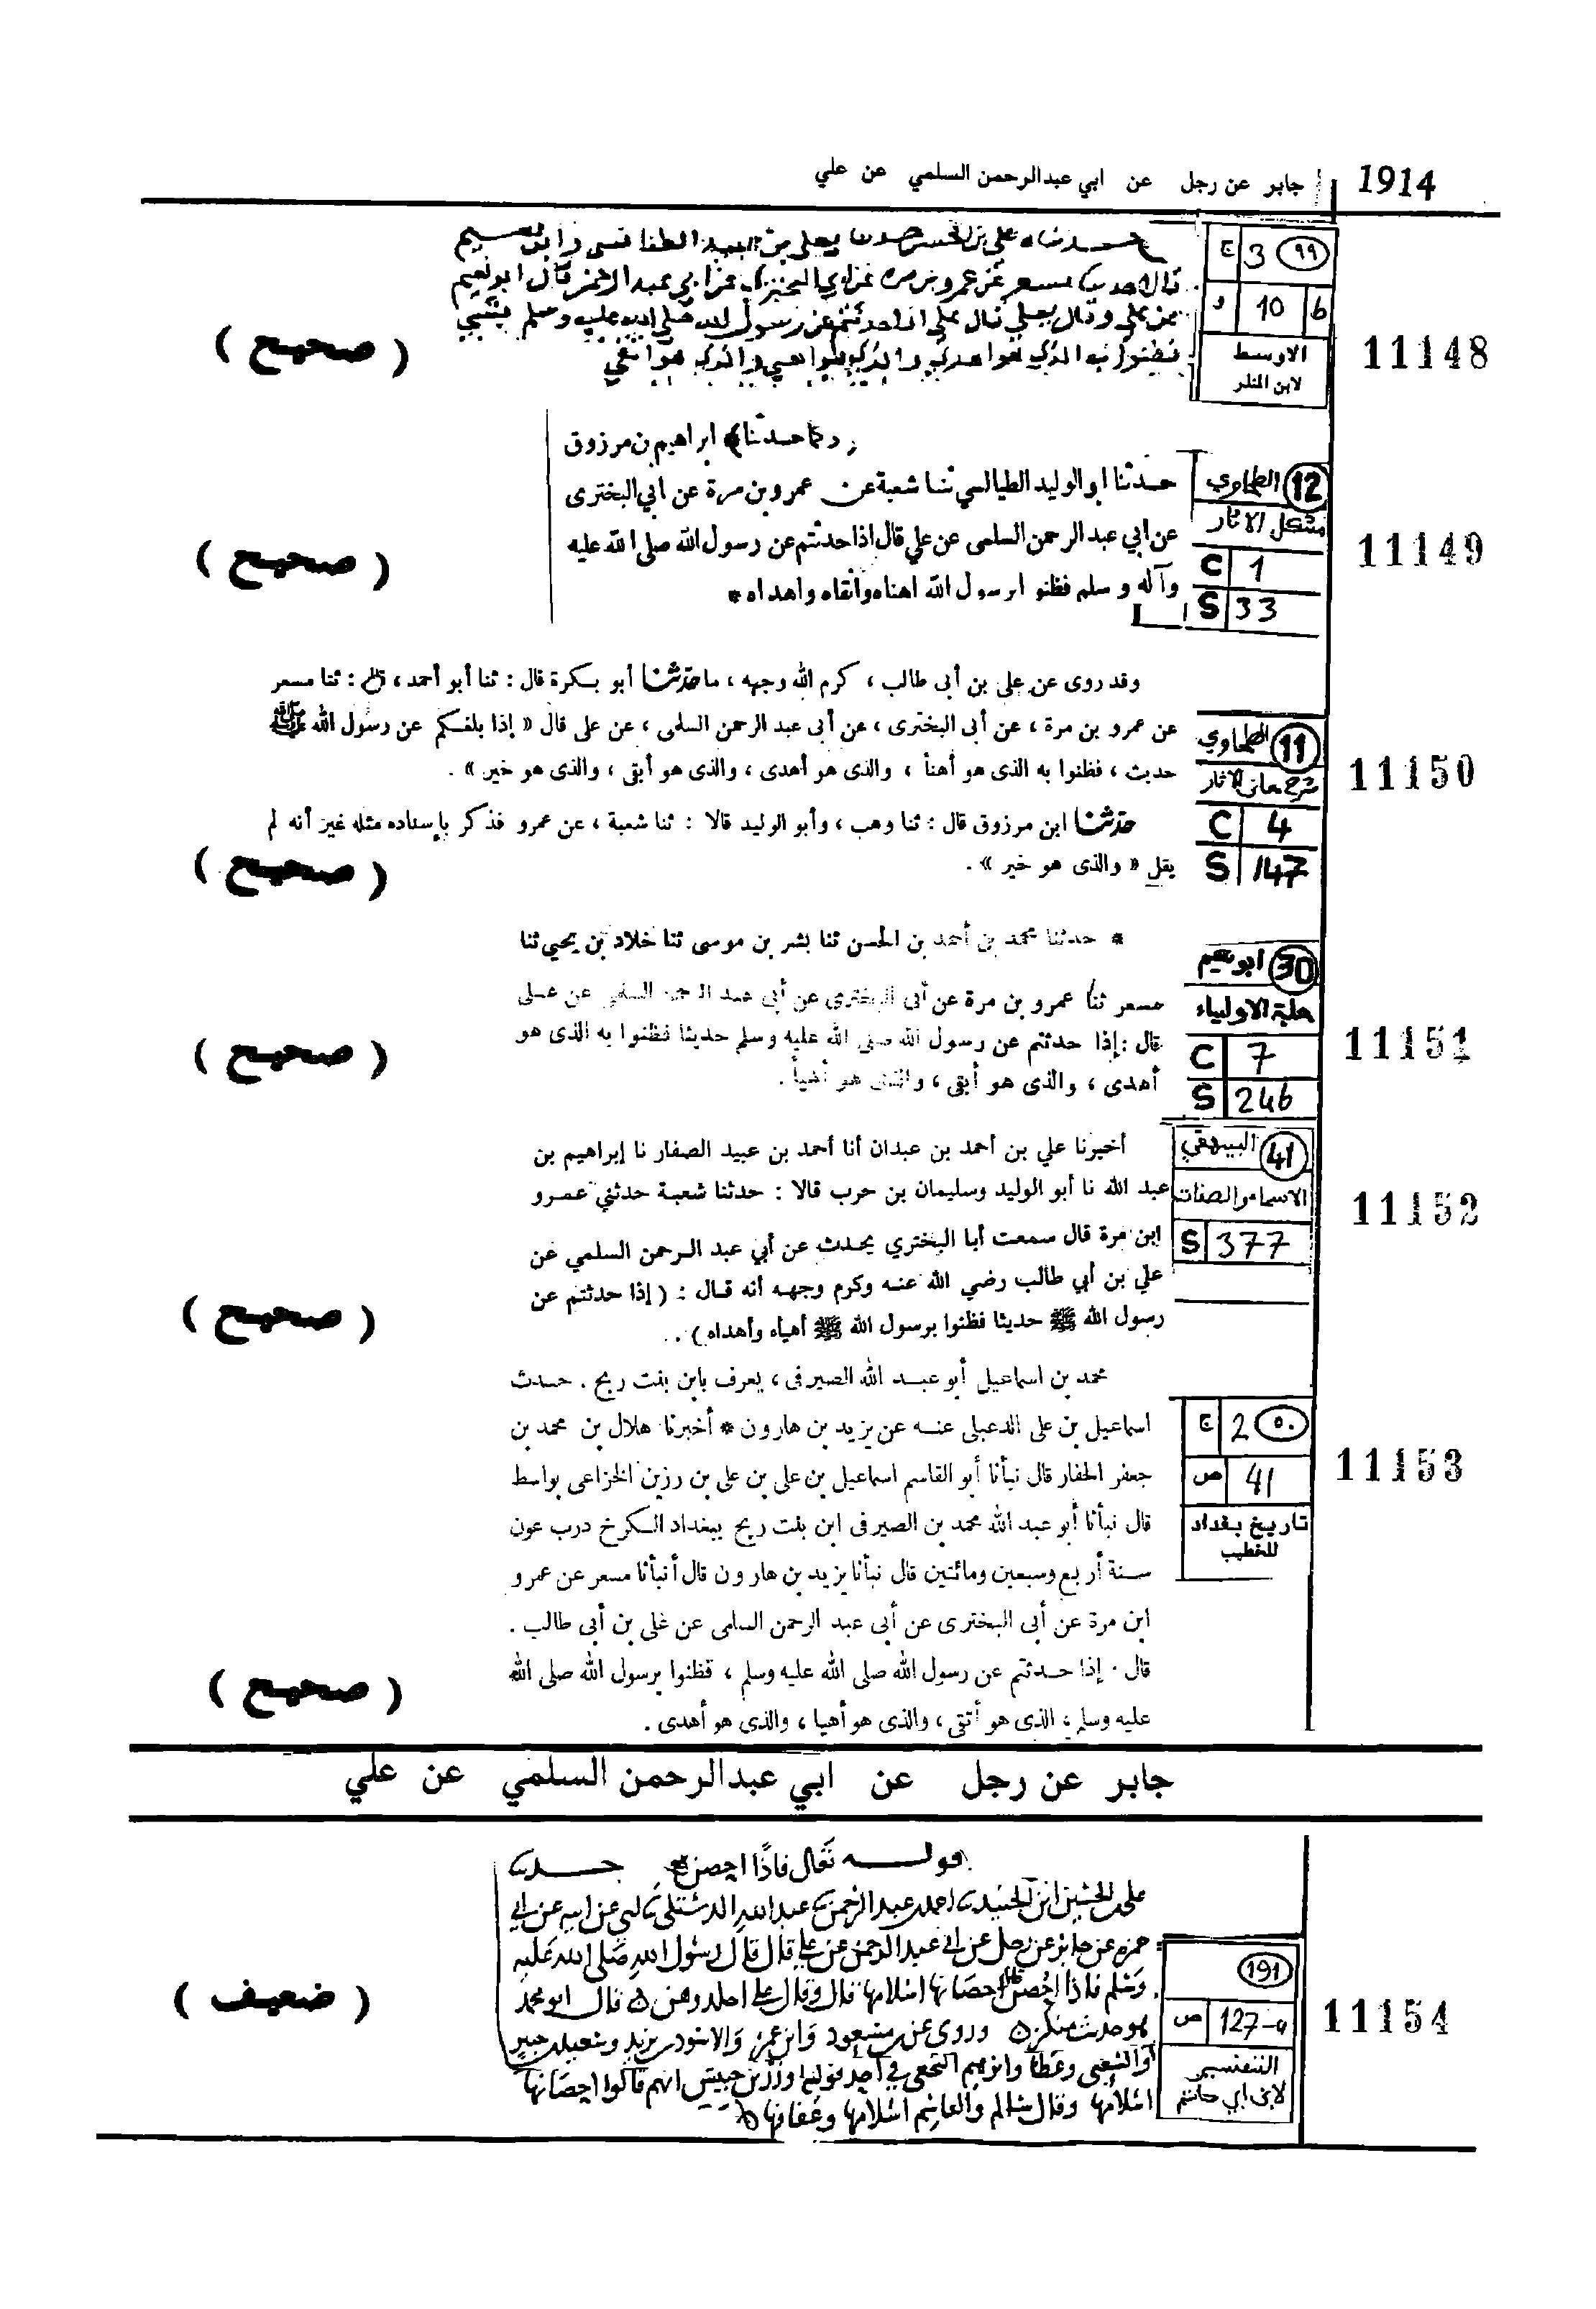 1914
جابر عن رجل عن ابي عبدالرحمن السلمي عن علي
99 3 ج
b 10 و
الاوسط
لابن المنذر
11148
حدثناه علي بن الحسن حدثنا يعلى بن عبيد الطنافسي وابو نعيم
قالا حدثنا مسعر عن عمرو بن مره عن ابي البختري عن ابي عبد الرحمن قال ابو نعيم
عن علي وقال يعلى قال علي اذا حدثتم عن رسول الله صلى الله عليه وسلم بشي
فظنوا به الذي هو اهدى والذي هو اهيى والذي هو اتقى
( صحيح )
ركما حدثنا) ابراهيم بن مرزوق
حدثنا ابو الوليد الطيالسي ثنا شعبة عن عمرو بن مرة عن ابي البخترى
عن ابي عبد الرحمن السلمى عن علي قال اذا حدثتم عن رسول الله صلى الله عليه
وآله وسلم فظنوا برسول الله اهناه واتقاه واهداه *
12 الطحاوي
مشكل الاثار
C 1
S 33
11149
( صحيح )
وقد روى عن على بن أبى طالب ، كرم الله وجهه ، ما حدثنا أبو بكرة قال : ثنا أبو أحمد ، قال : ثنا مسعر
عن عمرو بن مرة ، عن أبى البخترى ، عن أبى عبد الرحمن السلمى ، عن على قال « إذا بلغكم عن رسول الله ﷺ
حديث ، فظنوا به الذى هو أهنأ ، والذى هو أهدى ، والذى هو أبقى ، والذى هو خير » .
حدثنا ابن مرزوق قال : ثنا وهب ، وأبو الوليد قالا : ثنا شعبة ، عن عمرو فذكر بإسناده مثله غير أنه لم
يقل « والذى هو خير » .
11 الطحاوي
شرح معاني الاثار
C 4
S 147
11150
( صحيح )
* حدثنا محمد بن أحمد بن الحسن ثنا بشر بن موسى ثنا خلاد بن يحيى ثنا
مسعر ثنا عمرو بن مرة عن أبى البخترى عن أبى عبد الرحمن السلمى عن على
قال : إذا حدثتم عن رسول الله صلى الله عليه وسلم حديثا فظنوا به الذى هو
أهدى ، والذى هو أبقى ، والذى هو أهيأ .
30 ابو نعيم
حلية الاولياء
C 7
S 246
11151
( صحيح )
أخبرنا علي بن أحمد بن عبدان أنا أحمد بن عبيد الصفار نا إبراهيم بن
عبد الله نا أبو الوليد وسليمان بن حرب قالا : حدثنا شعبة حدثني عمرو
ابن مرة قال سمعت أبا البختري يحدث عن أبي عبد الرحمن السلمي عن
علي بن أبي طالب رضي الله عنه وكرم وجهه أنه قال : ( إذا حدثتم عن
رسول الله ﷺ حديثا فظنوا برسول الله ﷺ أهيأه وأهداه ) . .
41 البيهقي
الاسماء والصفات
S 377
11152
( صحيح )
محمد بن اسماعيل أبو عبد الله الصيرفى ، يعرف بابن بنت ربح . حدث
اسماعيل بن على الدعبلى عنه عن يزيد بن هارون * أخبرنا هلال بن محمد بن
جعفر الحفار قال نبأنا أبو القاسم اسماعيل بن على بن على بن رزين الخزاعى بواسط
قال نبأنا أبو عبد الله محمد بن الصيرفى ابن بنت ربح ببغداد الكرخ درب عون
سنة أربع وسبعين ومائتين قال نبأنا يزيد بن هارون قال أنبأنا مسعر عن عمرو
ابن مرة عن أبى البخترى عن أبى عبد الرحمن السلمى عن على بن أبى طالب .
قال . إذا حدثتم عن رسول الله صلى الله عليه وسلم ، فظنوا برسول الله صلى الله
عليه وسلم ، الذى هو أتقى ، والذى هو أهيا ، والذى هو أهدى .
٥٠ 2 ج
41 ص
تاريخ بغداد
للخطيب
11153
( صحيح )
جابر عن رجل عن ابي عبدالرحمن السلمي عن علي
قوله تعالى فاذا احصن حدثنا
علي بن الحسين ابن الجنيد احمد بن عبد الرحمن بن عبد الله الدشتكي ابي عن ابيه عن ابي
حمزه عن جابر عن رجل عن ابي عبد الرحمن عن علي قال قال رسول الله صلى الله عليه
وسلم فاذا احصن قال احصانها اسلامها قال وقال علي اجلدوهن قال ابو محمد
هو حديث منكر وروى عن مسعود وابن عمر والاسود بن يزيد وسعيد بن جبير
والشعبي وعطا وابرهيم النخعي في احد قوليه وزر بن حبيش انهم قالوا احصانها
اسلامها وقال سالم والقاسم اسلامها وعفافها
191
127-a ص
التفسير
لابن ابي حاتم
11154
( ضعيف )